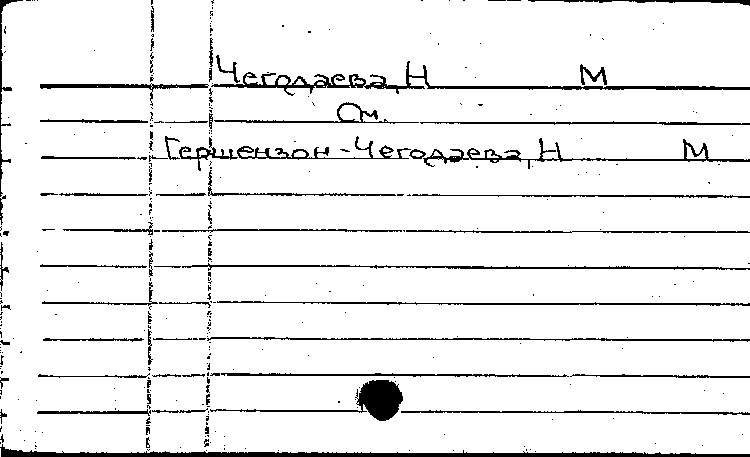 Чегодаева, Н М
См.
Гершензон-Чегодаева, Н М